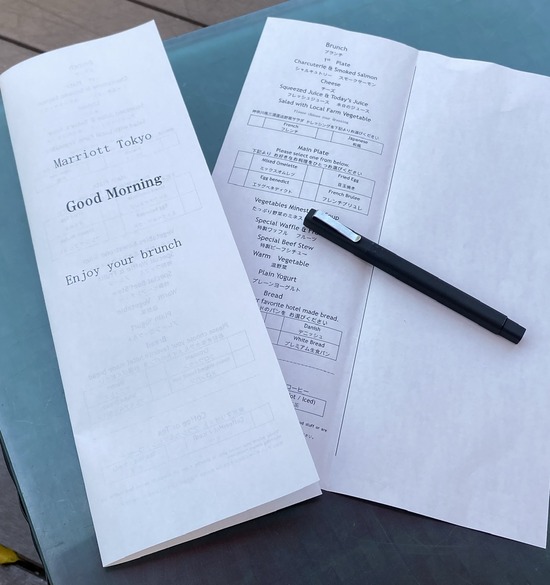 Marriott Tokyo
Good Morning
Enjoy your brunch
Brunch
ブランチ
1st Plate
Charcuterie & Smoked Salmon
シャルキュトリー スモークサーモン
Cheese
チーズ
Squeezed Juice & Today's Juice
フレッシュジュース 本日のジュース
Salad with Local Farm Vegetable
French
フレンチ
Japanese
和風
Main Plate
Please select one from below.
下記より お好きなお料理をひとつお選びください
Mixed Omelette
ミックスオムレツ
Fried Egg
目玉焼き
Egg benedict
エッグベネディクト
French Brulee
フレンチブリュレ
Vegetables Minest
たっぷり野菜のミネス
Special Waffle &
特製ワッフル フルーツ
Special Beef Stew
特製ビーフシチュー
Warm Vegetable
温野菜
Plain Yogurt
プレーンヨーグルト
Bread
r favorite hotel made bread.
のパンを お選びください
Danish
デニッシュ
White Bread
プレミアム生食パン
コーヒー
ot / Iced)